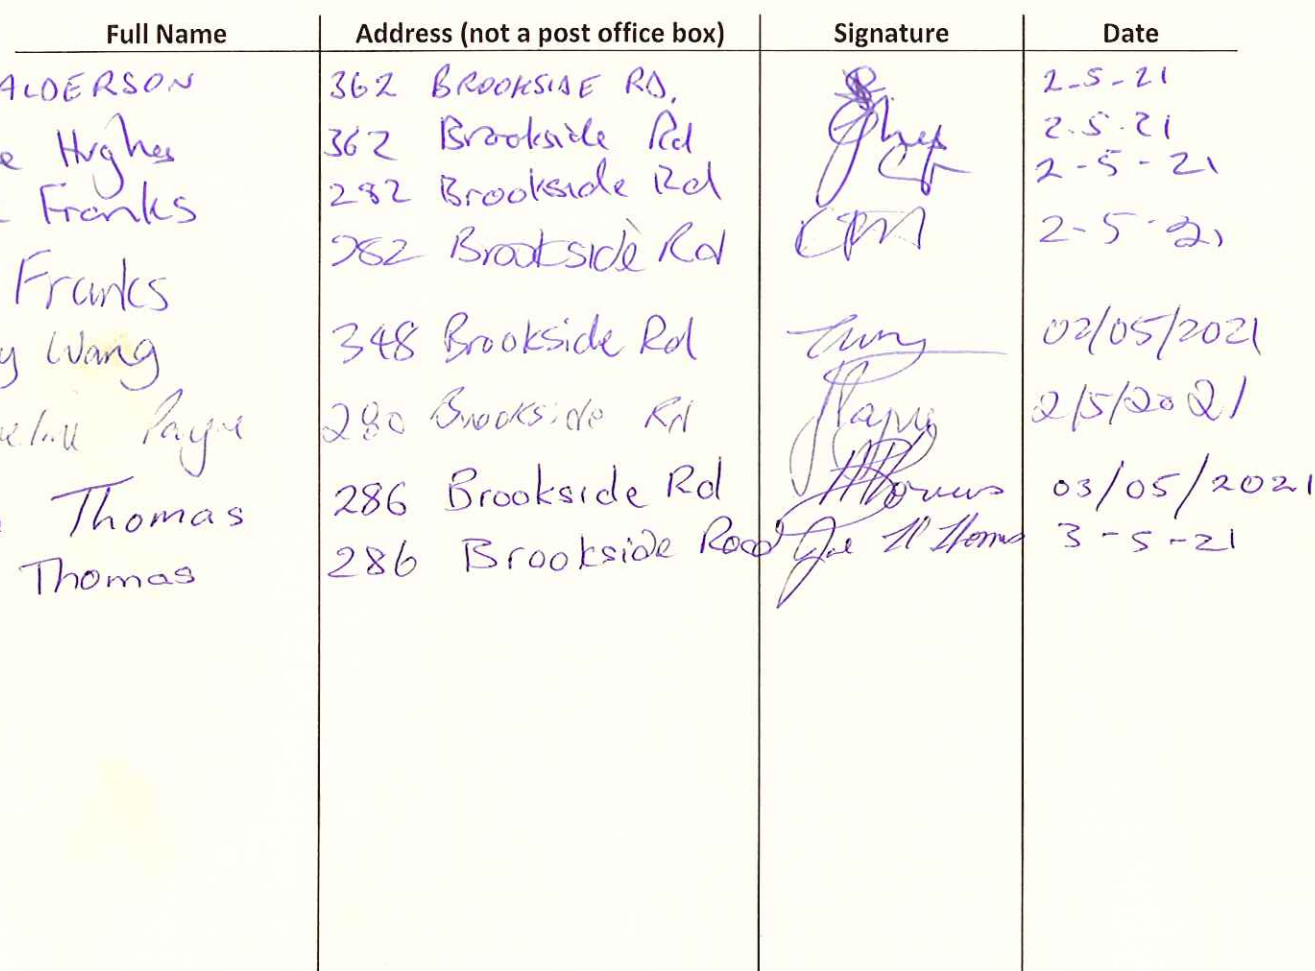 Full Name Address (not a post office box) Signature Date
ALDERSON 362 BROOKSIDE RD. 2-5-21
e Hughes 362 Brookside Rd 2.5.21
Franks 282 Brookside Rd 2-5-21
Franks 282 Brookside Rd 2-5-21
y Wang 348 Brookside Rd 02/05/2021
Payne 280 Brookside Rd 2/5/2021
Thomas 286 Brookside Rd 03/05/2021
Thomas 286 Brookside Road 3-5-21